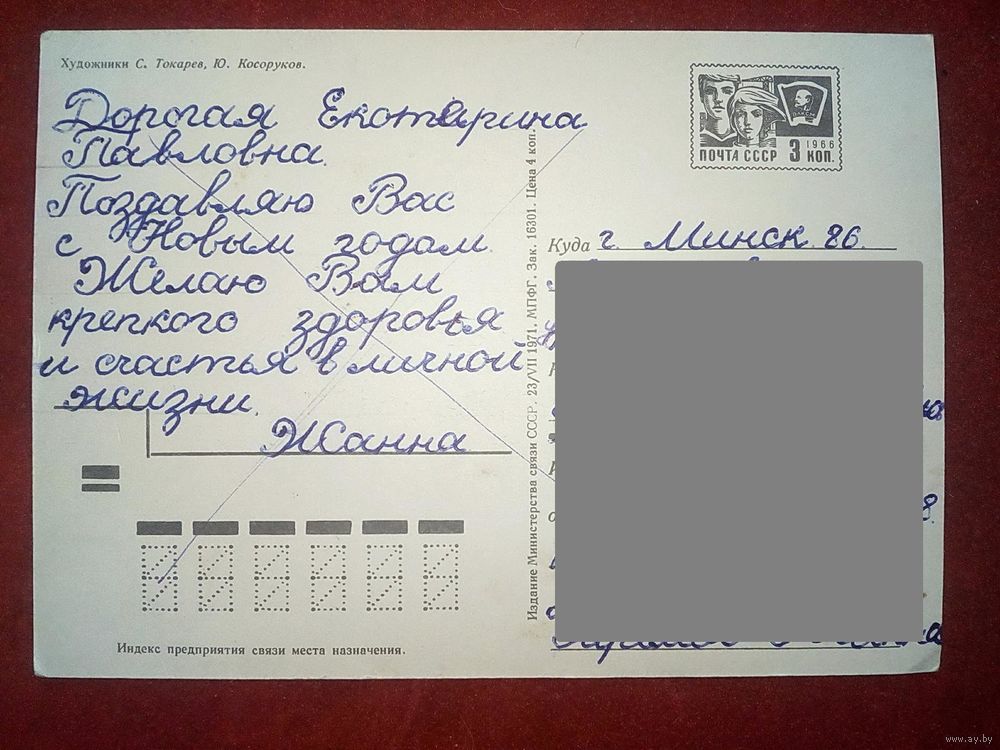 Художники С. Токарев, Ю. Косоруков.
Дорогая Екатерина
Павловна.
Поздавляю Вас
с Новым годам.
Желаю Вам
крепкого здоровья
и счастья в личной
жизни.
Жанна
Индекс предприятия связи места назначения.
Издание Министерства связи СССР. 23/VII 1971. МПФГ. Зак. 16301. Цена 4 коп.
ВЛКСМ
1966
ПОЧТА СССР 3 КОП.
Куда г. Минск 86.
8.
www.ay.by